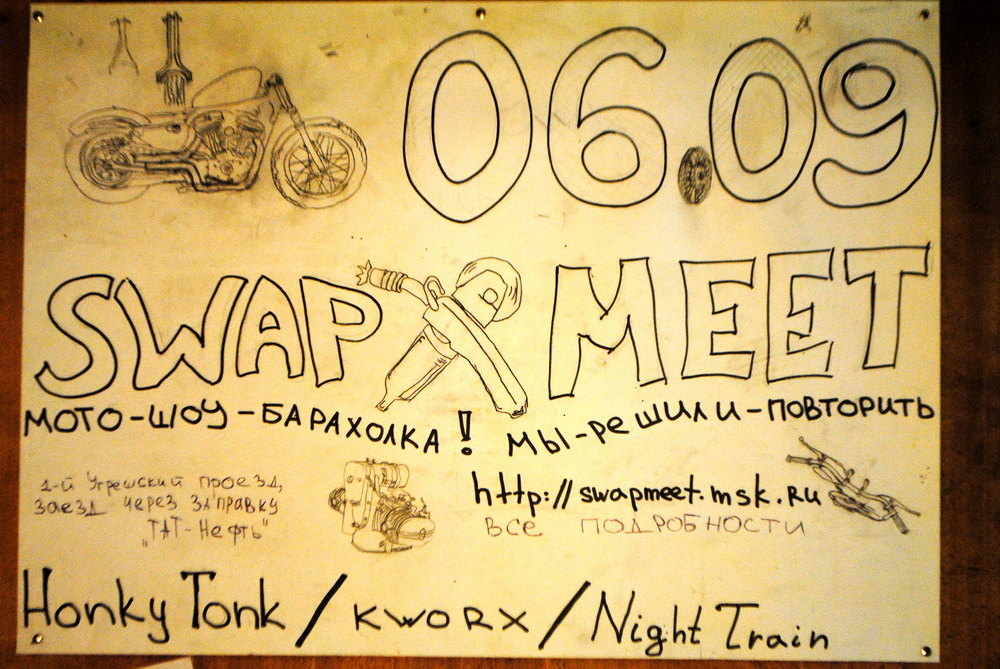 06.09
SWAP MEET
МОТО-ШОУ-БАРАХОЛКА! МЫ-РЕШИЛИ-ПОВТОРИТЬ
1-й Угрешский проезд,
заезд через заправку
"ТАТ-Нефть"
http://swapmeet.msk.ru
ВСЕ ПОДРОБНОСТИ
Honky Tonk / KWORX / Night Train